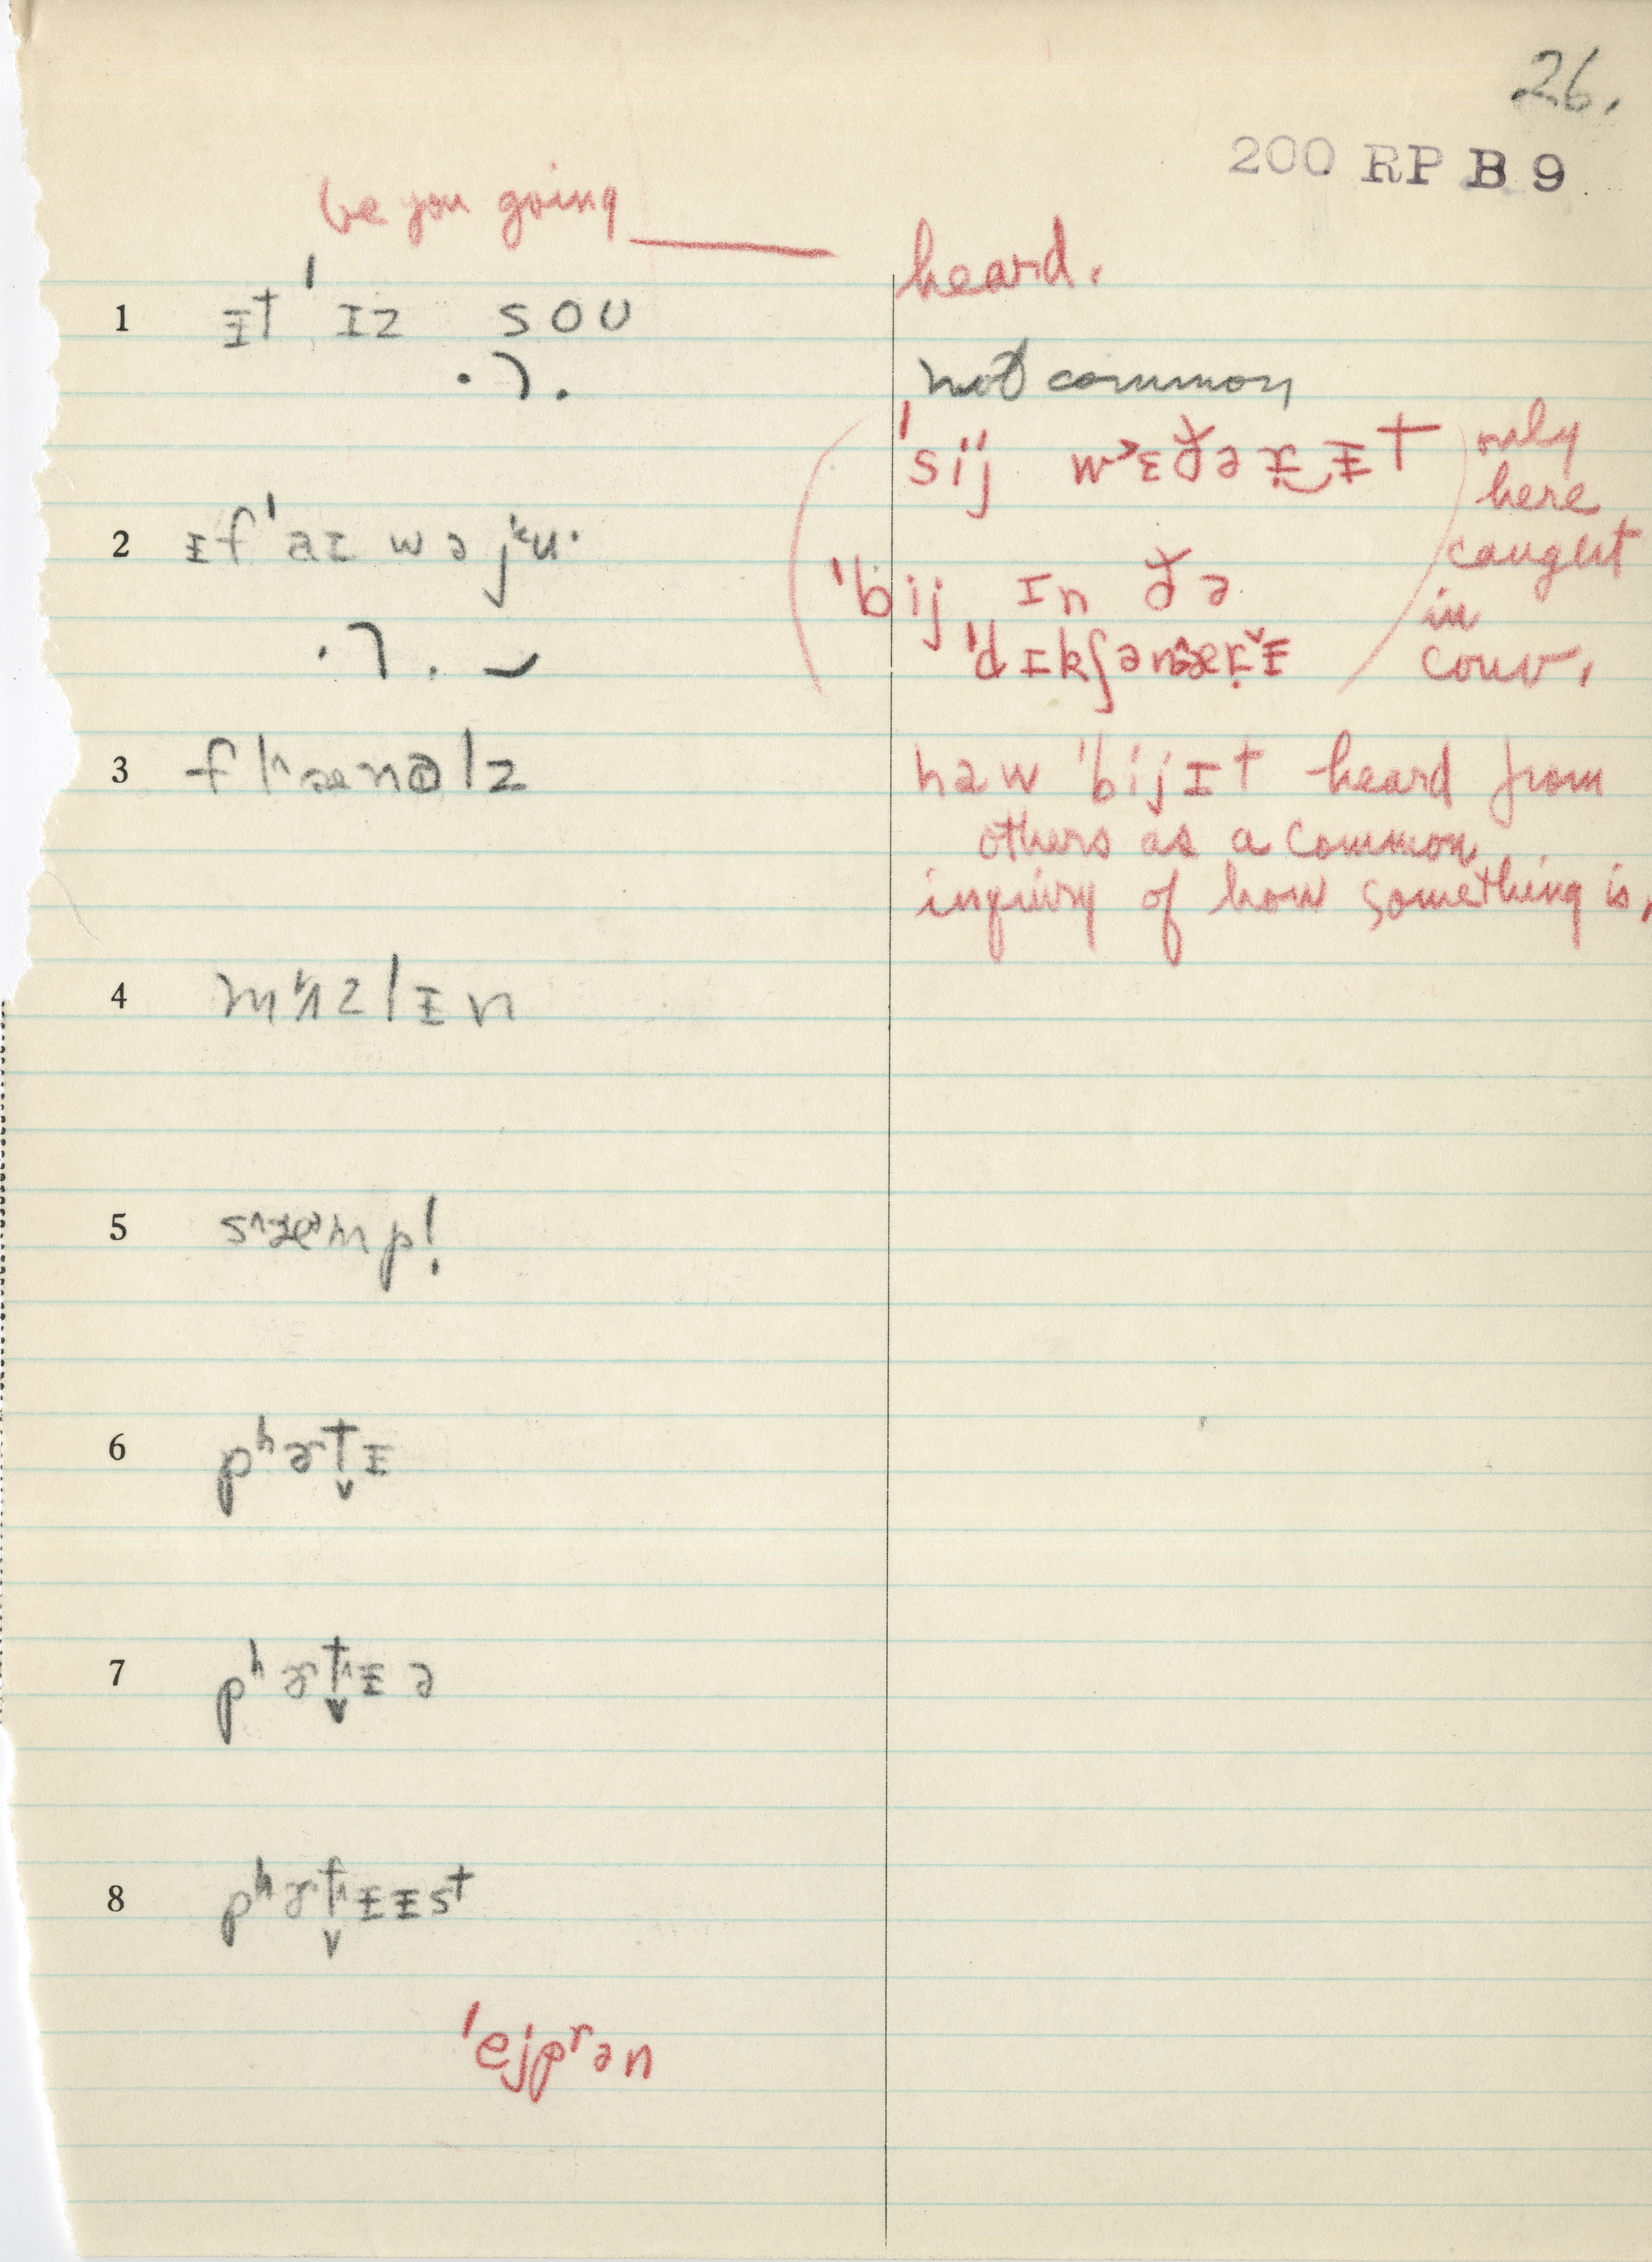 26.
200 RP B 9
be you going ____ heard.
1 ᵻt ˈɪz soʊ
not common
ˈsij wɛðəɹ‿ᵻt only here caught in conv.
2 ᵻf ˈaɪ wə ju·
ˈbij ɪn ðə
ˈdɪkʃən
3 flænəlz
haw ˈbij ɪt heard from
others as a common
inquiry of how something is,
4 mʌzlᵻn
5
6 pʰɚt̬ᵻ
7 pʰɚt̬ᵻə
8 pʰɚt̬ᵻᵻst
ˈejprən